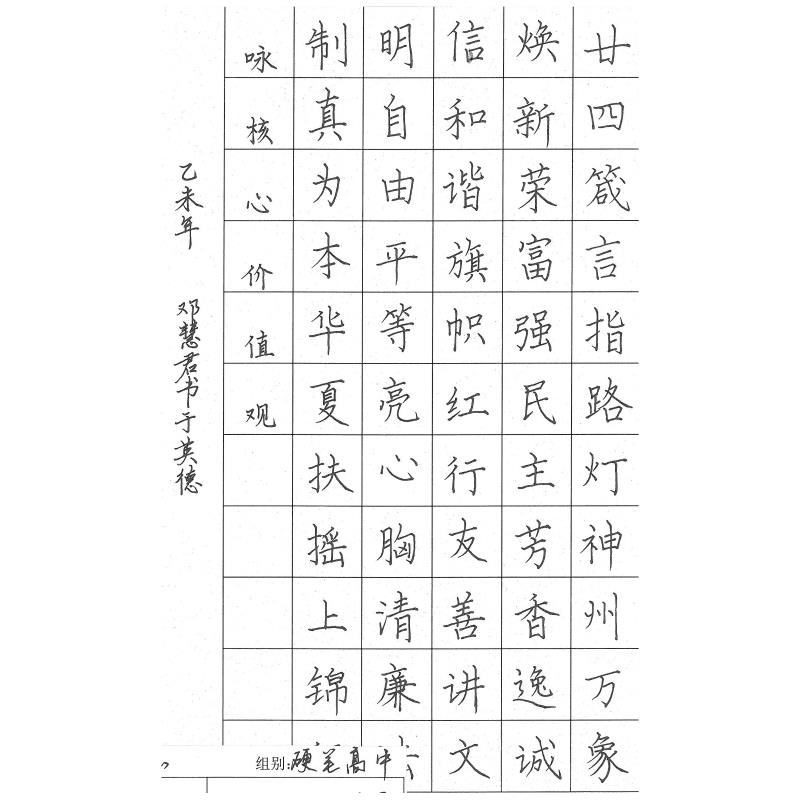 廿四箴言指路灯神州万象
焕新荣富强民主芳香逸诚
信和谐旗帜红行友善讲文
明自由平等亮心胸清廉
制真为本华夏扶摇上锦
咏核心价值观
乙未年 邓慧君书于英德
组别:硬笔高中